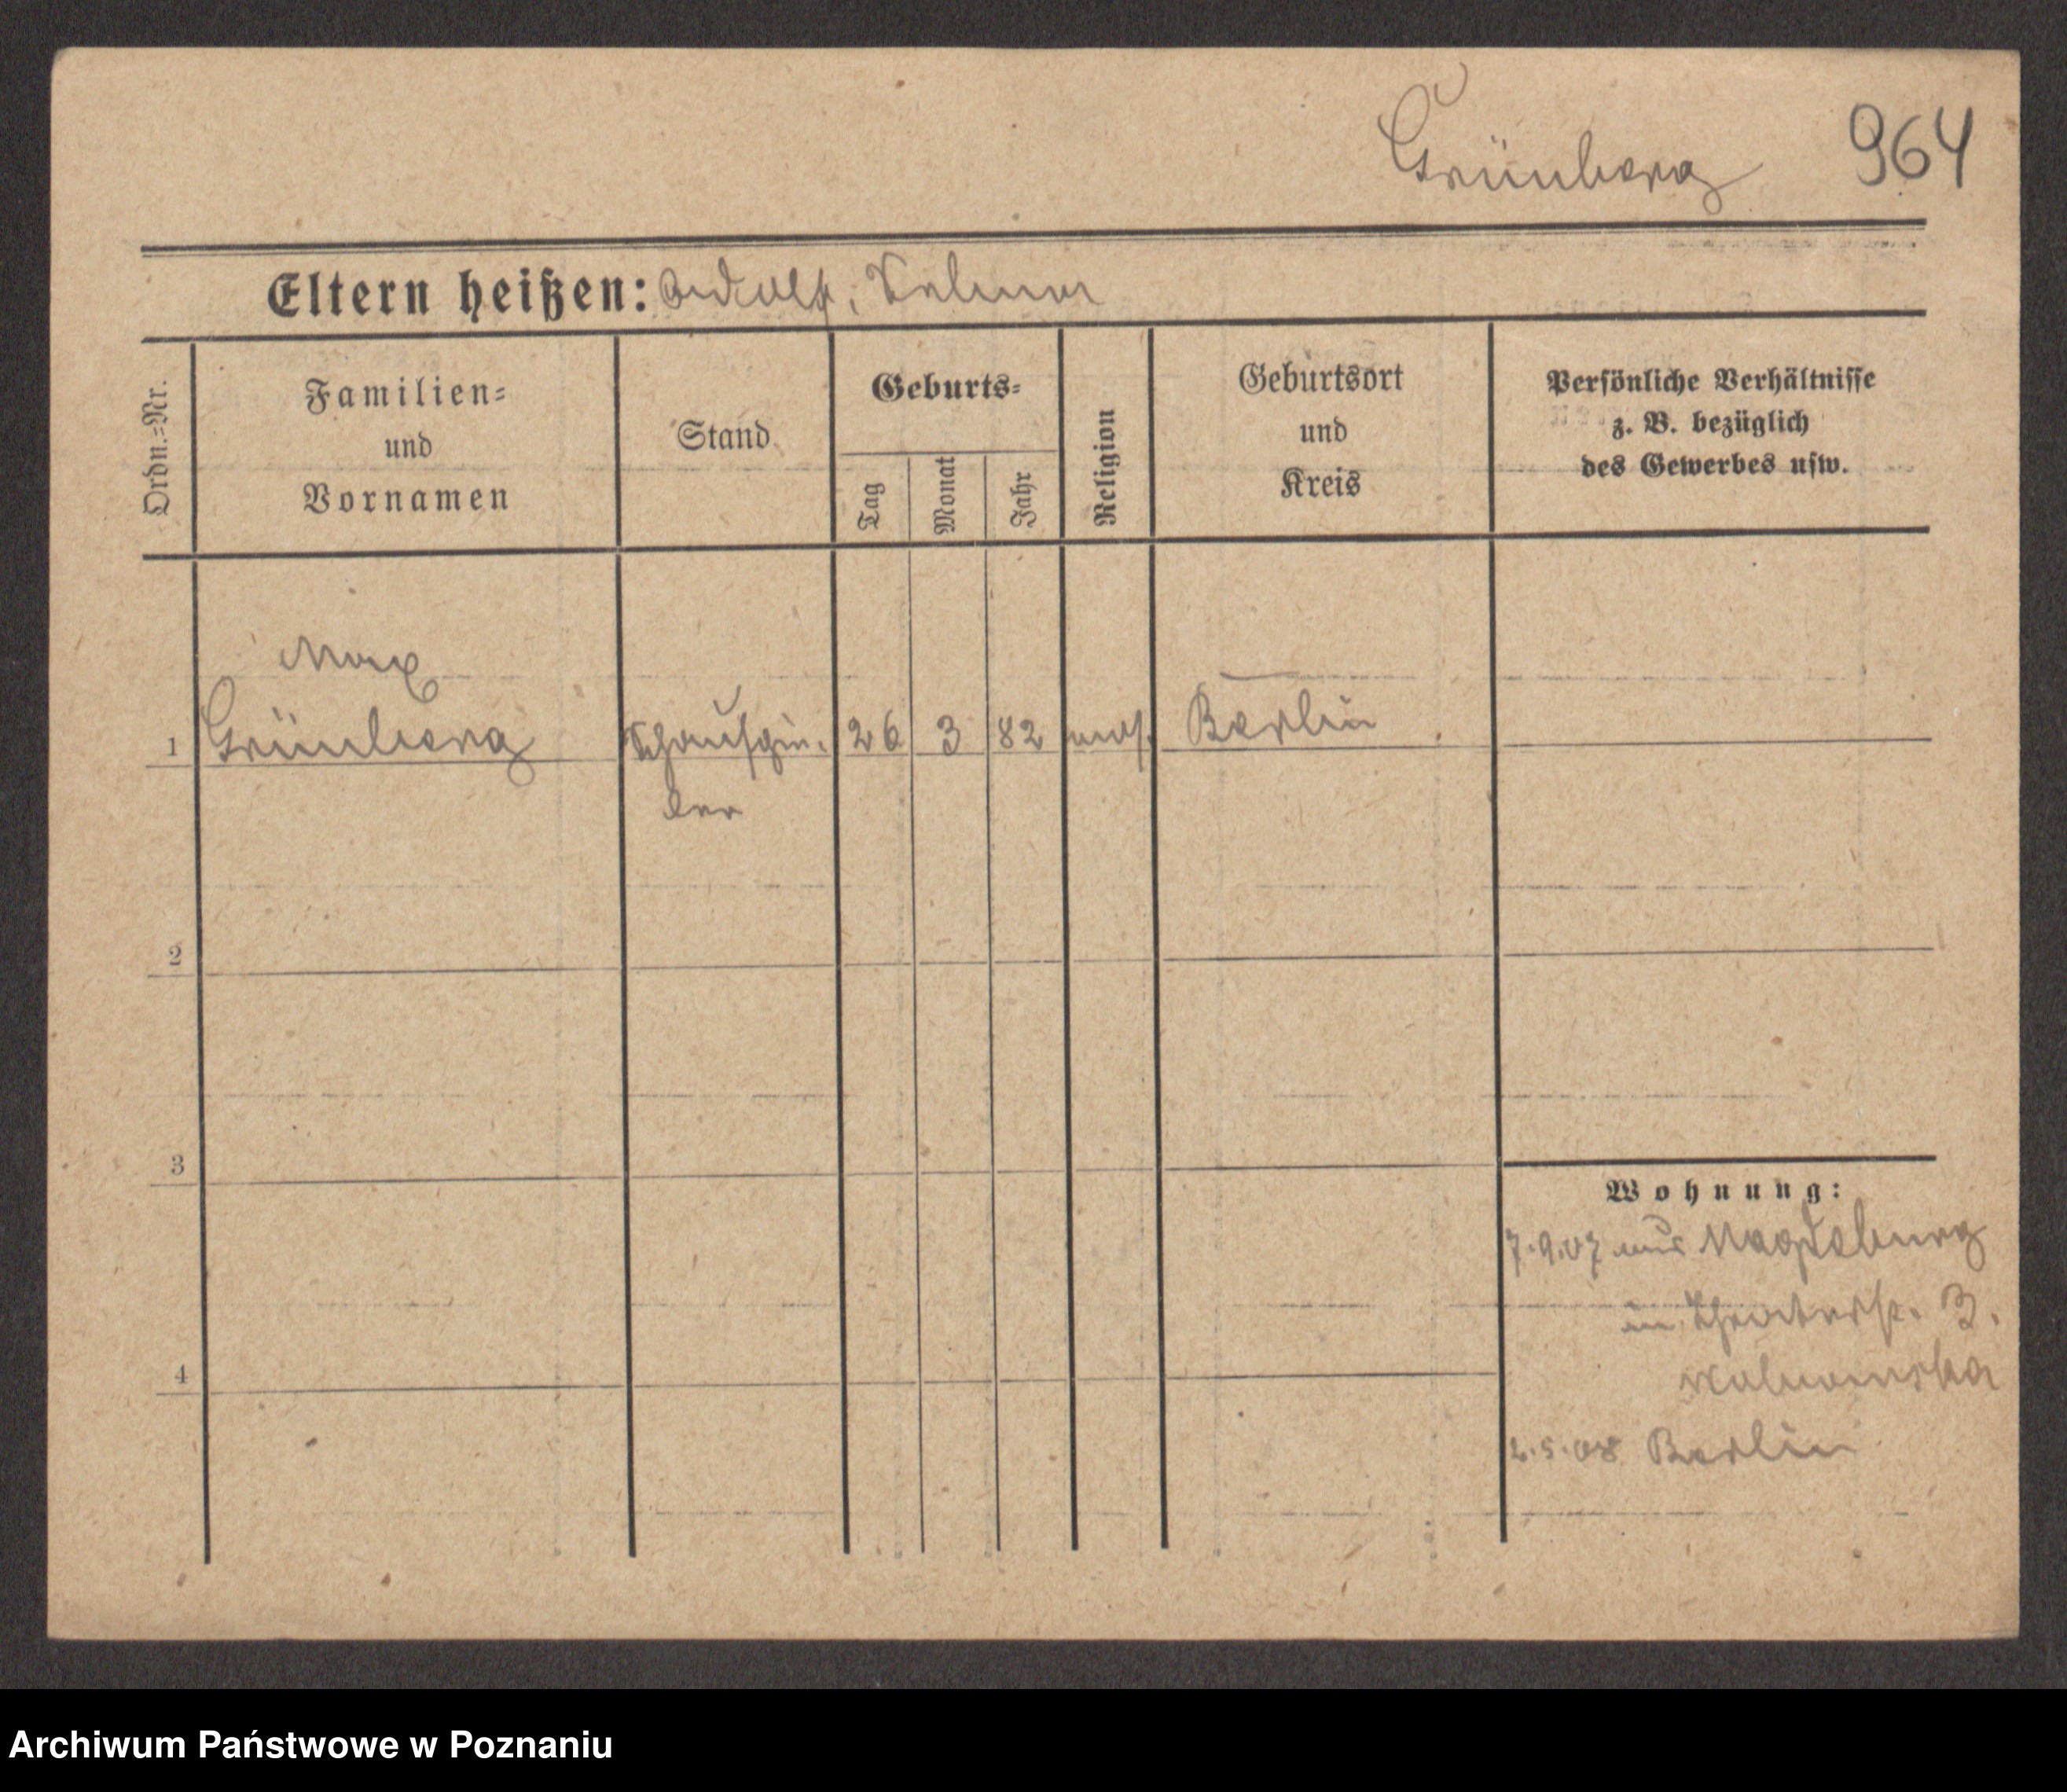 Grünberg 964
Eltern heißen: Adolf, Selma
Ordn.-Nr.
Familien-
und
Vornamen
Stand
Geburts-
Tag
Monat
Jahr
Religion
Geburtsort
und
Kreis
Persönliche Verhältnisse
z. B. bezüglich
des Gewerbes usw.
Max
1 Grünberg Schauspie- 26 3 82 mos. Berlin
ler
2
3
Wohnung:
7.9.07 aus Magdeburg
in Theaterstr. 3.
4
2.5.08 Berlin
Archiwum Państwowe w Poznaniu